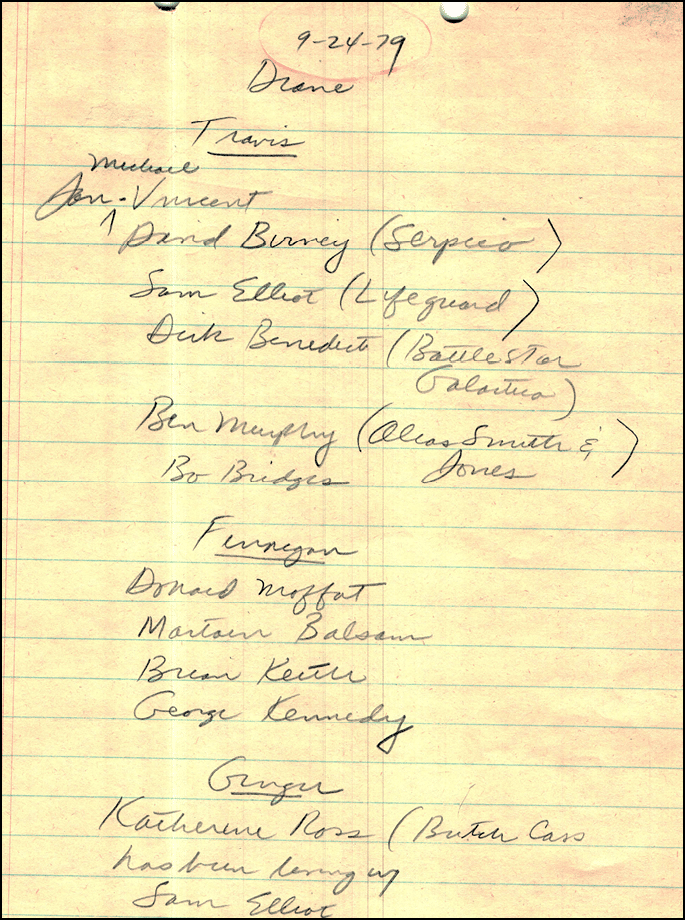 9-24-79
Diane
Travis
Michael
Jan-Vincent
David Birney (Serpico)
Sam Elliot (Lifeguard)
Dirk Benedict (BattleStar
Galactica)
Ben Murphy (Alias Smith &
Jones)
Bo Bridges
Finnegan
Donald Moffat
Martain Balsam
Brian Keith
George Kennedy
Ginger
Katherine Ross (Butch Cass
has been living w/
Sam Elliot